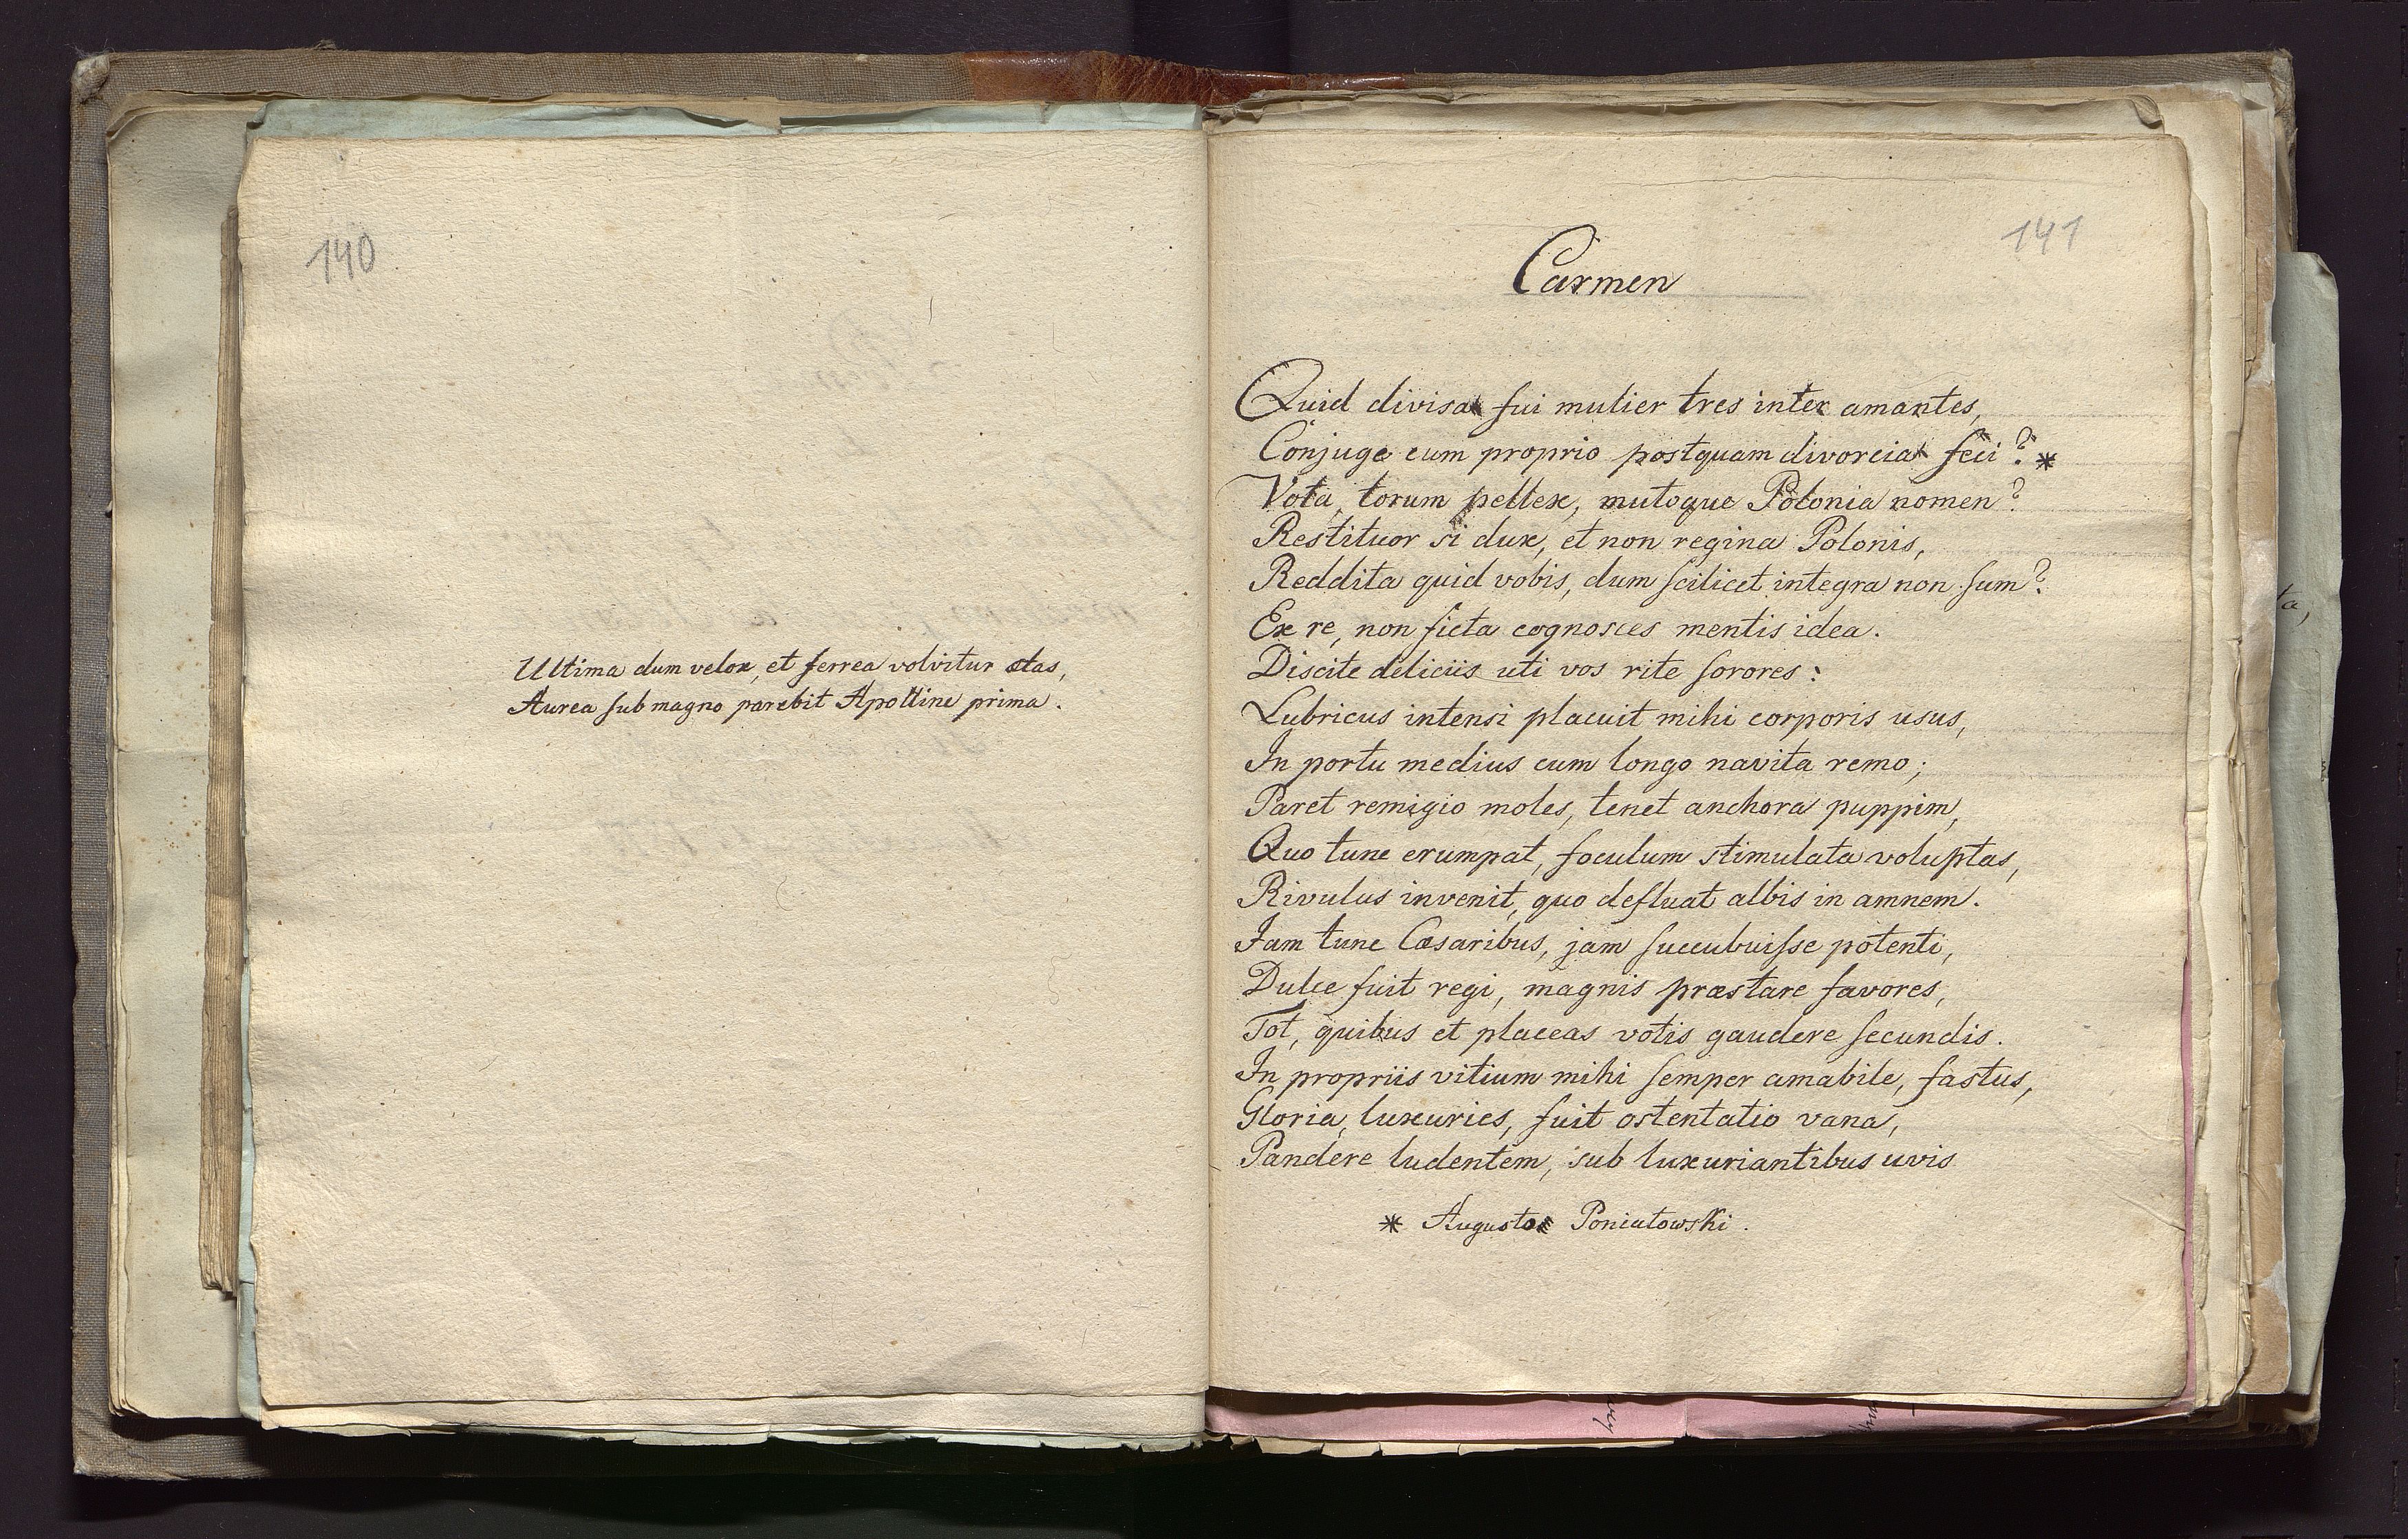 140
Ultima dum velox, et ferrea volvitur ætas,
Aurea sub magno parebit Apolline prima.
141
Carmen
Quid divisa fui mulier tres inter amantes,
Conjuge cum proprio postquam divorcia feci? *
Vota, torum pellex, mutoque Polonia nomen?
Restituor si dux, et non regina Polonis,
Reddita quid vobis, dum scilicet integra non sum?
Ex re, non ficta cognosces mentis idea.
Discite deliciis uti vos rite sorores:
Lubricus intensi placuit mihi corporis usus,
In portu medius cum longo navita remo;
Paret remigio moles, tenet anchora puppim,
Quo tunc erumpat, foculum stimulata voluptas,
Rivulus invenit, quo defluat albis in amnem.
Jam tunc Cæsaribus, jam succubuisse potenti,
Dulce fuit regi, magnis præstare favores,
Tot, quibus et placeas votis gaudere secundis.
In propriis vitium mihi semper amabile, fastus,
Gloria, luxuries, fuit ostentatio vana,
Pandere ludentem, sub luxuriantibus uvis
* Augusto Poniatowski.
ta,